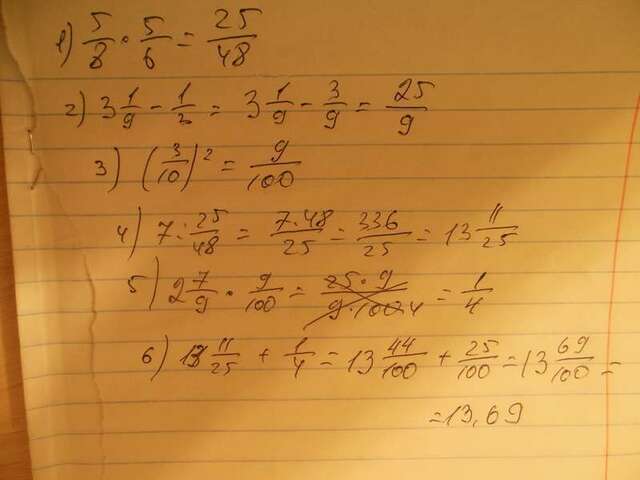 1) 5/8 · 5/6 = 25/48
2) 3 1/9 - 1/3 = 3 1/9 - 3/9 = 25/9
3) (3/10)² = 9/100
4) 7 : 25/48 = 7·48/25 = 336/25 = 13 11/25
5) 2 7/9 · 9/100 = 25·9/9·100 4 = 1/4
6) 13 11/25 + 1/4 = 13 44/100 + 25/100 = 13 69/100 =
= 13,69